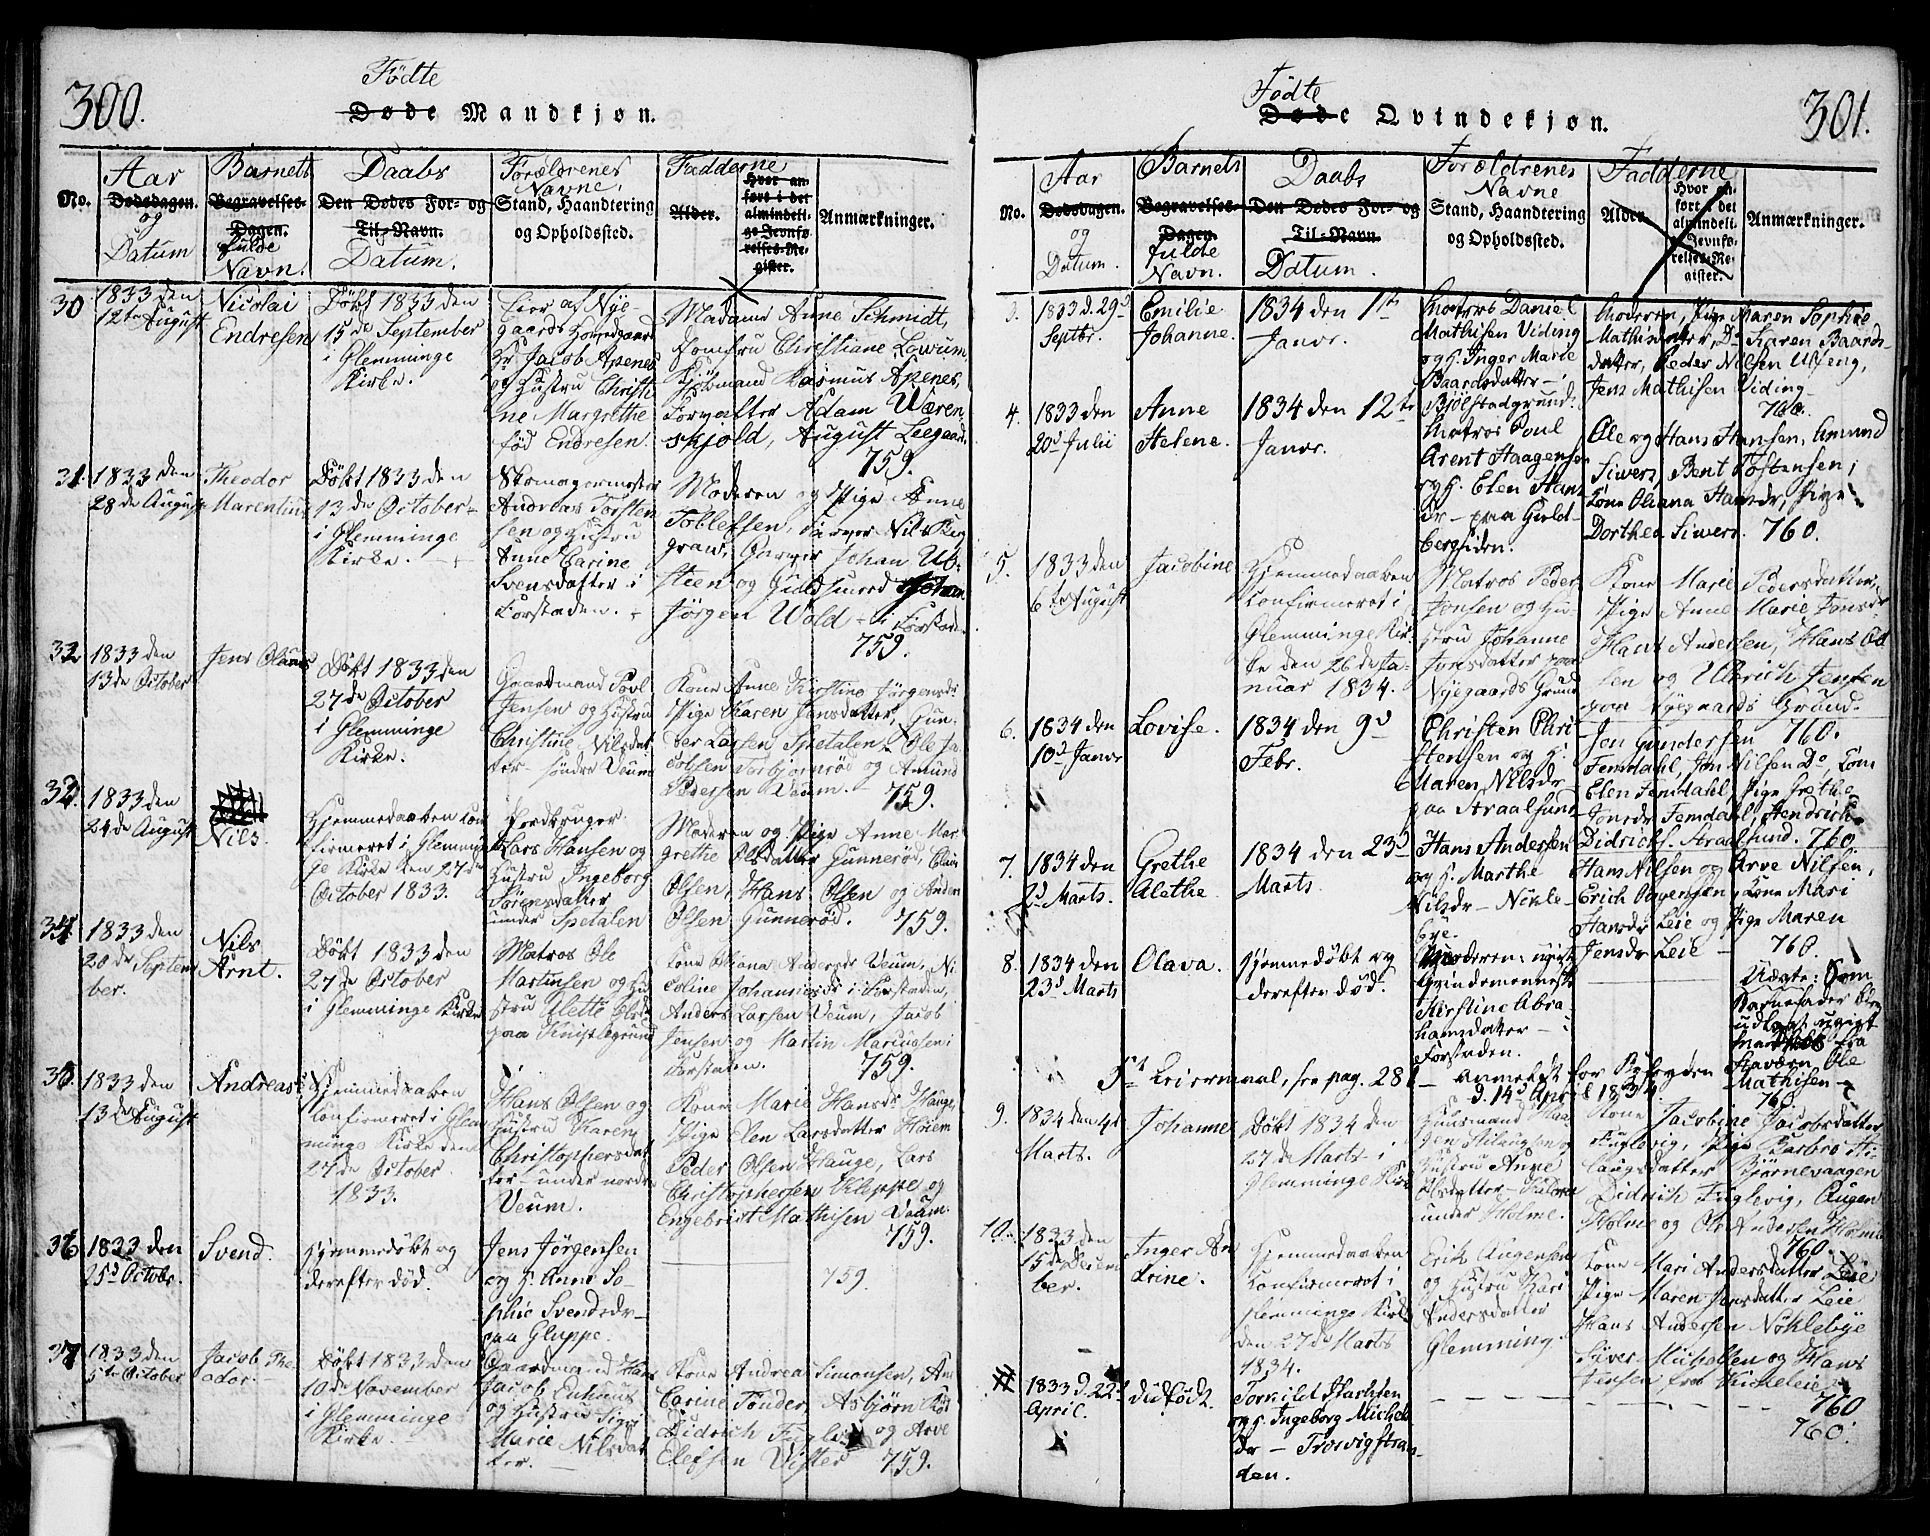 300.
Fødte
Døde Mandkjøn.
No.
Aar
Dødsdagen.
og
Datum
Barnets
Begravelses-
Dagen.
fulde
Navn.
Daabs
Den Dødes For- og
Til-Navn.
Datum.
Forældrenes
Navne,
Stand, Haandtering
og Opholdssted.
Fadderne
Alder.
Hvor an-
ført i det
almindeli-
ge Jevnfø-
relses-Re-
gister.
Anmærkninger.
30
1833 den
12te August
Nicolai
Endresen
Døbt 1833 den
15de September
i Glemminge
Kirke.
Eier af Nye-
gaards Hovedgaard
Hr Jacob Apenes
og Hustru Christi-
ne Margrethe
fød Endresen.
Madame Anne Schmidt,
Jomfru Christiane Lowum,
Kjøbmand Rasmus Apenes,
Forvalter Adam Wæren-
skjold, August Leegaard.
759.
31.
1833 den
28de August
Theodor
Marentius
Døbt 1833 den
13de October
i Glemminge
Kirke.
Skomagermester
Andreas Torsten-
sen og Hustru
Anne Carine
Svensdatter i
Forstaden.
Moderen og Pige Anne
Toblefsen, Farver Nils Big-
graw, Garver Johan Ub-
steen og Guldsmed
Jörgen Wold i Forstaden
759.
32
1833 den
13de October
Jens Olaus
Døbt 1833 den
27de October
i Glemminge
Kirke.
Gaardmand Povl
Jensen og Hustru
Christine Nilsdat-
ter söndre Veum
Kone Anne Kirstine Jörgensdr
Pige Karen Jonsdatter, Gun-
der Larsen Spetalen, Ole Ja-
cobsen Torbjørnrød og Amund
Pedersen Veum. 759.
33.
1833 den
24de August
Nils.
Hjemmedaaben con-
firmeret i Glemmin-
ge Kirke den 27de
October 1833.
Jordbruger
Lars Hansen og
Hustru Ingeborg
Sörensdatter
under Spetalen
Moderen og Pige Anne Mar-
grethe Olsdatter Gunnerød,
Olsen, Hans Olsen og Anders
Olsen Gunnerød. 759.
34
1833 den
20de Septem-
ber.
Nils
Arnt.
Døbt 1833 den
27de October
i Glemminge Kirke
Matros Ole
Martinsen og Hu-
stru Olette Olsdr
paa Knipplegrund
Kone Oliana Andersdr Veum, Ni-
coline Johannesdr i Forstaden,
Anders Larsen Veum, Jacob
Jensen og Martin Mariussen i
Forstaden. 759.
35.
1833 den
13de August
Andreas
Hjemmedaaben
confirmeret i Glem-
minge Kirke den
27de October
1833.
Hans Olsen og
Hustru Karen
Christophersdat-
ter under nordre
Veum.
Kone Marie Hansdr Hauge,
Pige Olen Larsdatter Holem
Peder Olsen Hauge, Lars
Christophersen Kleppe og
Engebrigt Mathisen Veum.
759.
36
1833 den
25d Octobr.
Svend.
Hjemmedøbt og
derefter død.
Jens Jørgensen
og H. Anne So-
phie Svendsdr
paa Gluppe.
759.
37
1833 den
5te October
Jacob The-
odor.
Døbt 1833 den
10de November
i Glemminge
Kirke
Gaardmand Hans
Jacob
og Hustru Signe
Marie Nilsdat-
ter.
Kone Andrea Simonsen,
Carine Tønder, Asbjørn
Didrich og Arve
Elefsen Vister 759.
301.
Fødte
Døde Qvindekjøn.
No.
Aar
Dødsdagen.
og
Datum.
Barnets
Begravelses-
Dagen.
fulde
Navn.
Daabs
Den Dødes For- og
Til-Navn.
Datum.
Forældrenes
Navne
Stand, Haandtering
og Opholdssted.
Fadderne
Alder.
Hvor an-
ført i det
almindeli-
ge Jevnfø-
relses-Re-
gister.
Anmærkninger.
3.
1833 d. 29d
Septbr.
Emilie
Johanne.
1834 den 1ste
Janvr.
Matros Daniel
Mathisen Viding
og H. Inger Marie
Baardsdatter
Bjølstadgrund.
Moderen, Pige Maren Sophie
Mathisdatter, Do Karen Baards-
datter, Peder Nilsen Ulfeng,
Jens Mathisen Viding
760.
4.
1833 den
20d Julii
Anne
Helene.
1834 den 12te
Janvr.
Matros Poul
Arent Haagensen
og H. Elen Hans-
dr paa Guld-
bergsiden.
Ole og Hans Hansen, Amund
Siwers, Bent Tostensen,
Kone Oliana Hansdr, Pige
Dorthea Siwers. 760.
5.
1833 den
6te August
Jacobine
Hjemmedaaben
confirmeret i
Glemminge Kir-
ke den 26de Ja-
nuar 1834.
Matros Peder
Jensen og Hu-
stru Johanne
Jonsdatter paa
Nyegaards Grund
Kone Marie Pedersdatter,
Pige Anne Marie Jonsdr
Hans Andersen, Hans Ol-
sen og Ulbrich Jensen
paa Nyegaards Grund.
760.
6.
1834 den
10d Janvr
Lovise.
1834 den 9d
Febr.
Christen Chri-
stensen og H.
Maren Nilsdr
paa Straalsund
Jon Gundersen
Femdahl, Jon Nilsen Do Kone
Elen Femdahl, Pige Grethe
Jonsdr Femdahl, Hendrich
Didrichs. Straalsund. 760.
7.
1834 den
2d Marts.
Grethe
Alethe.
1834 den 23d
Marts.
Hans Andersen
og H. Marthe
Nilsdr Nökle-
bye.
Hans Nilsen og Arve Nilsen,
Erich Borgersen, Kone Mari
Hansdr Leie og Pige Maren
Jensdr Leie 760.
8.
1834 den
23d Marts
Olava.
Hjemmedøbt og
derefter død.
Moderen: ugivt
Qvindemenneske
Kirstine Abra-
hamsdatter i
Forstaden.
Uægte: Som
Barnefader blev
udlagt ugivt
Matros fra
Stavern Ole
Mathisen
760.
5t Leiermaal, fra pag. 281 anmeldt for Fogden
d. 14d April 1834.
9.
1834 den 4d
Marts.
Johanne
Døbt 1834 den
27de Marts i
Glemminge Kirke
Huusmand Haa-
gen Hilaugsen og
Hustru Anne
Olsdatter
under Holme.
Kone Jacobine Jacobsdatter
Fuglevig, Pige Barbro Hi-
laugsdatter Bjørnevaagen
Didrich Fuglevig, Augen
Holme og Ole Andersen Holme
760.
10.
1833 den
15de Decem-
ber.
Inger An-
drine.
Hjemmedaaben
confirmeret i
Glemminge Kirke
den 27de Marts
1834.
Erik Augensen
og Hustru Kari
Andersdatter
Glemming
Kone Mari Andersdatter Leie
Pige Maren Jensdatter Leie
Hans Andersen Nøklebye
Siver og Hans
Jensen fra Kirkeleie
760
1833 d. 22d
April.
didfødt.
Torkild Karlsen
og H. Ingeborg Michels-
dr Trosvigstran-
den.
760.